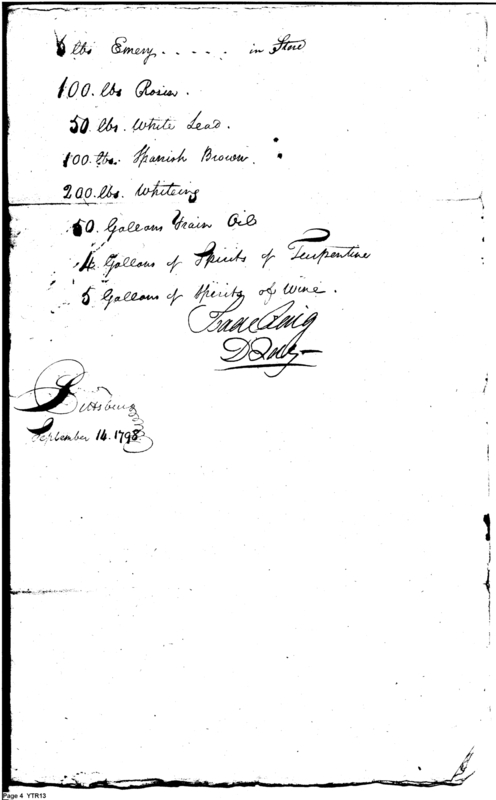 6 lbs Emery ..... in Store
100. lbs Rosin.
50 lbs. White Lead.
100. lbs. Spanish Brown.
200. lbs. Whiteing
50. Gallons Train Oil
4 Gallons of Spirits of Turpentine
5 Gallons of Spirits of Wine.
Isaac Craig
D Q M
Pittsburg
September 14. 1798
Page 4 YTR13